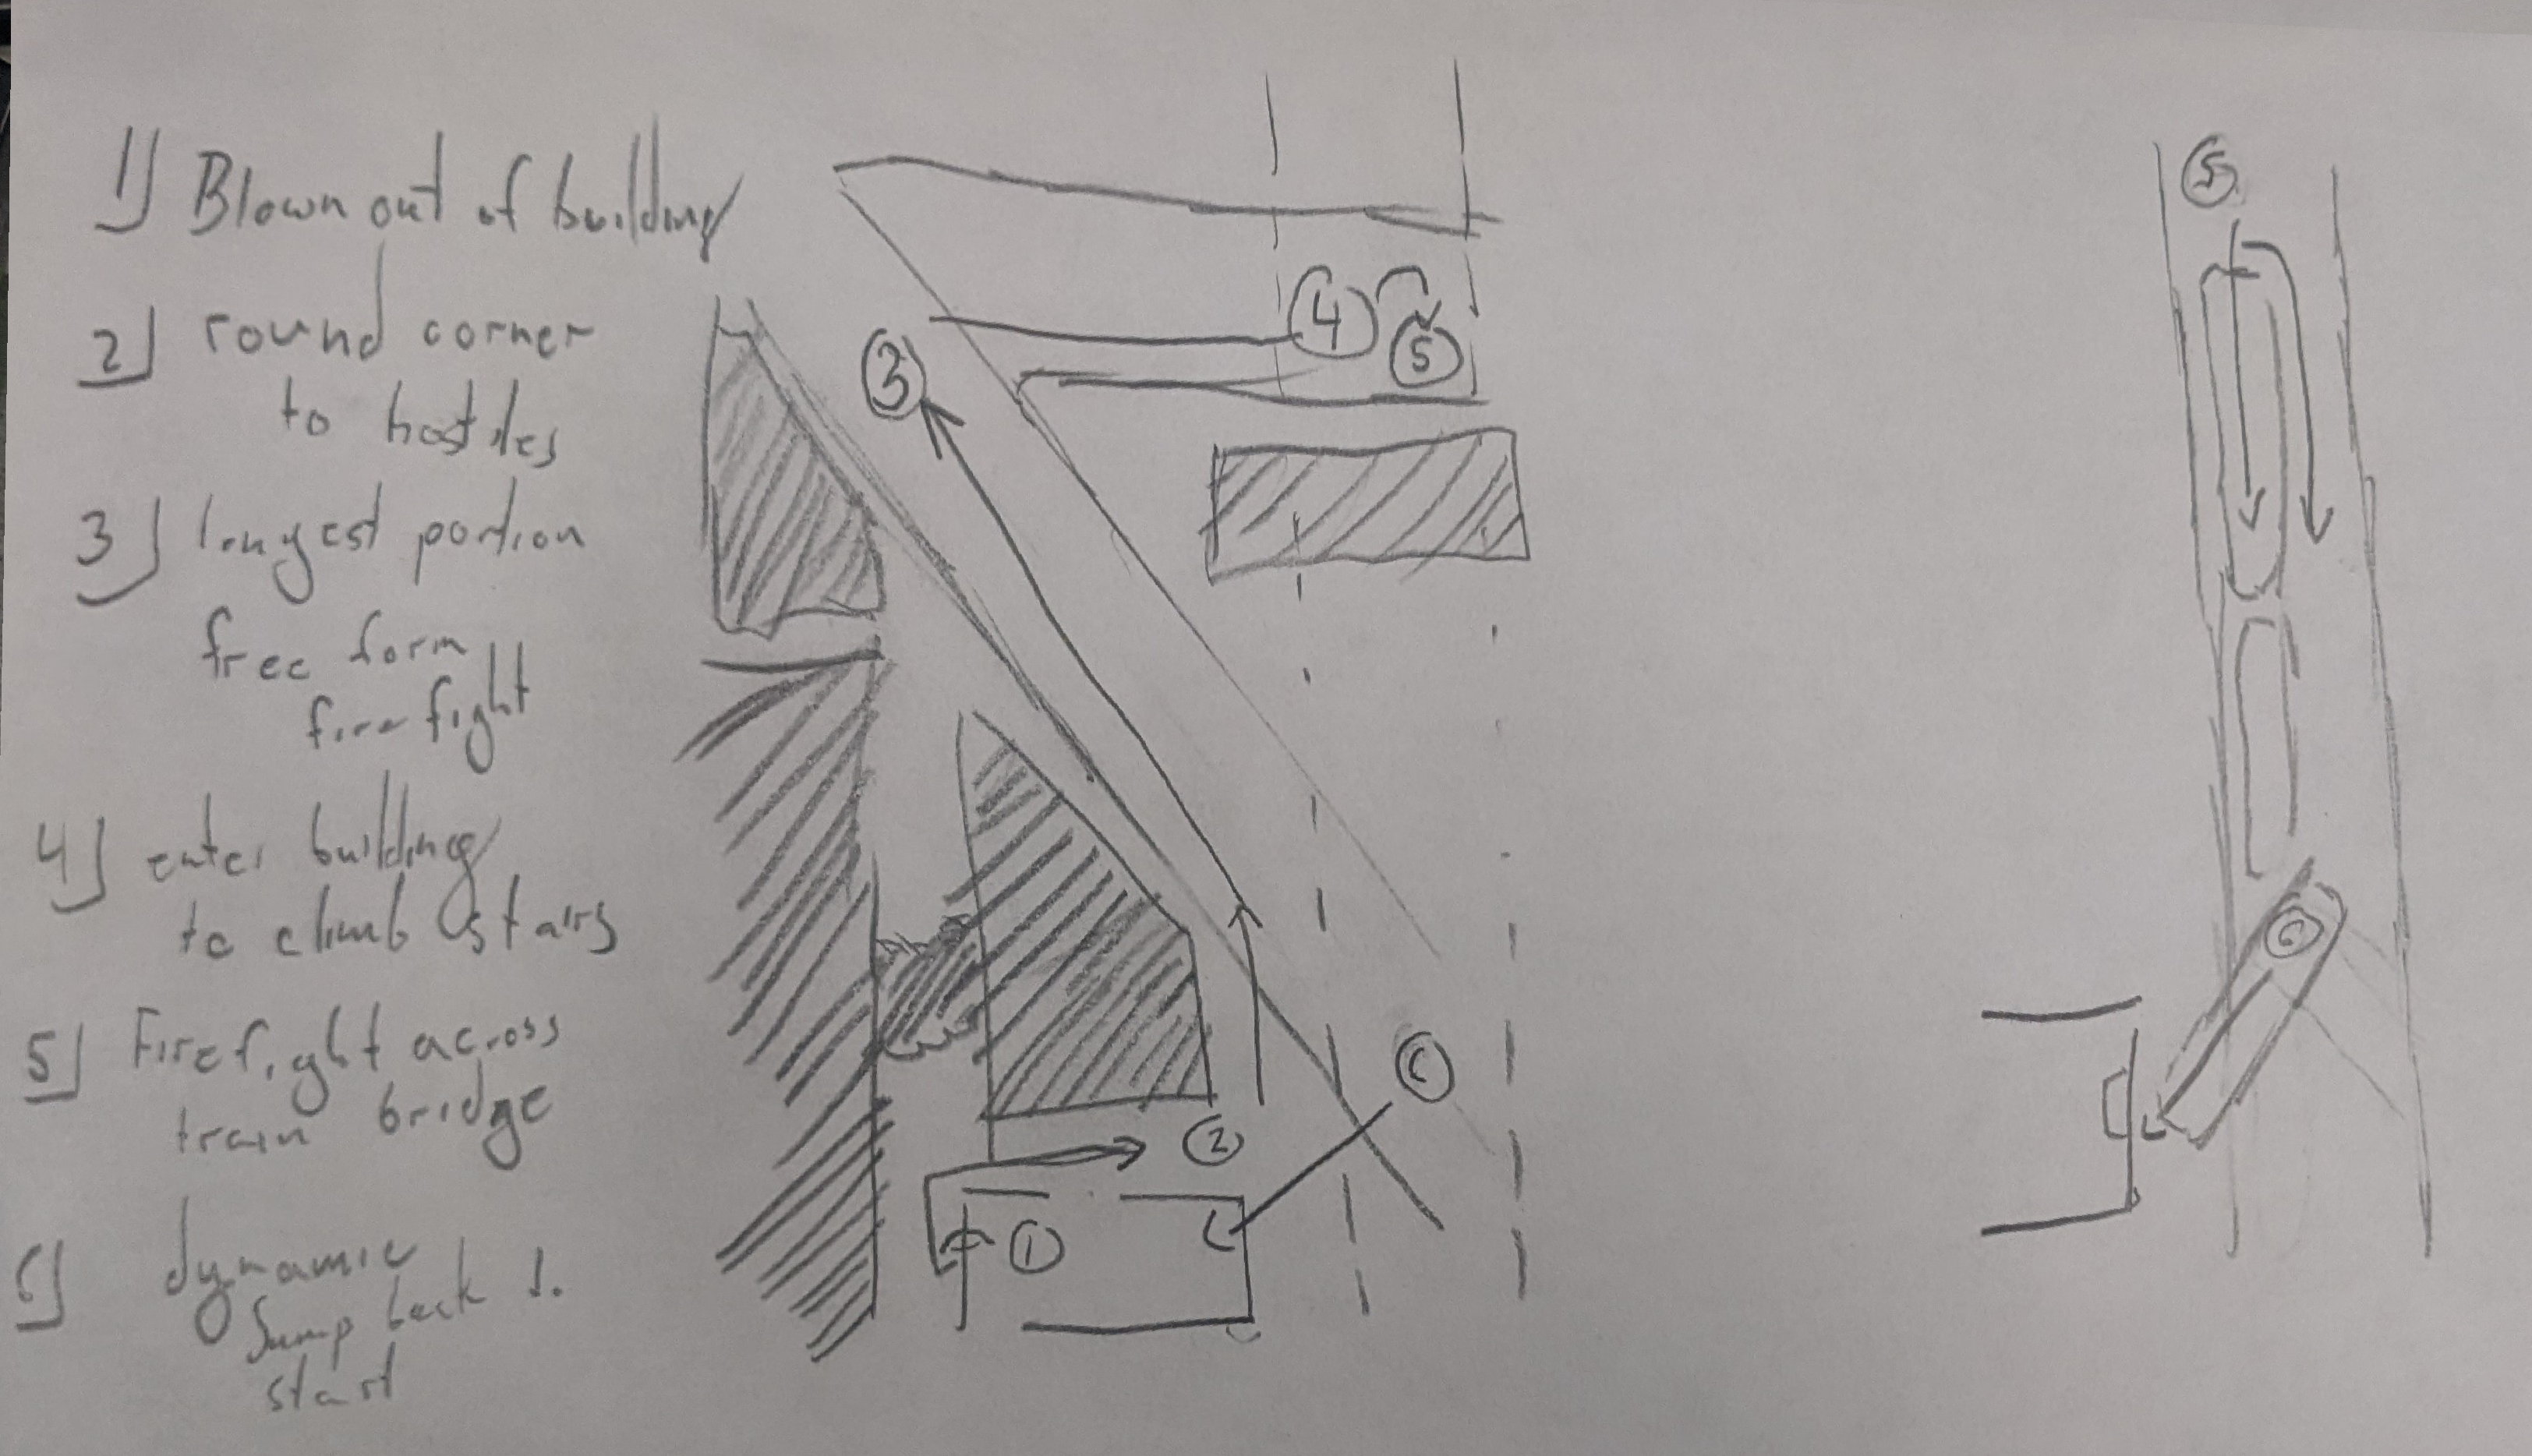 1) Blown out of building
2) round corner
to hostiles
3) longest portion
free form
firefight
4) enter building
to climb stairs
5) Firefight across
train bridge
6) dynamic
Jump back 1.
start
3
4
5
2
1
6
5
6